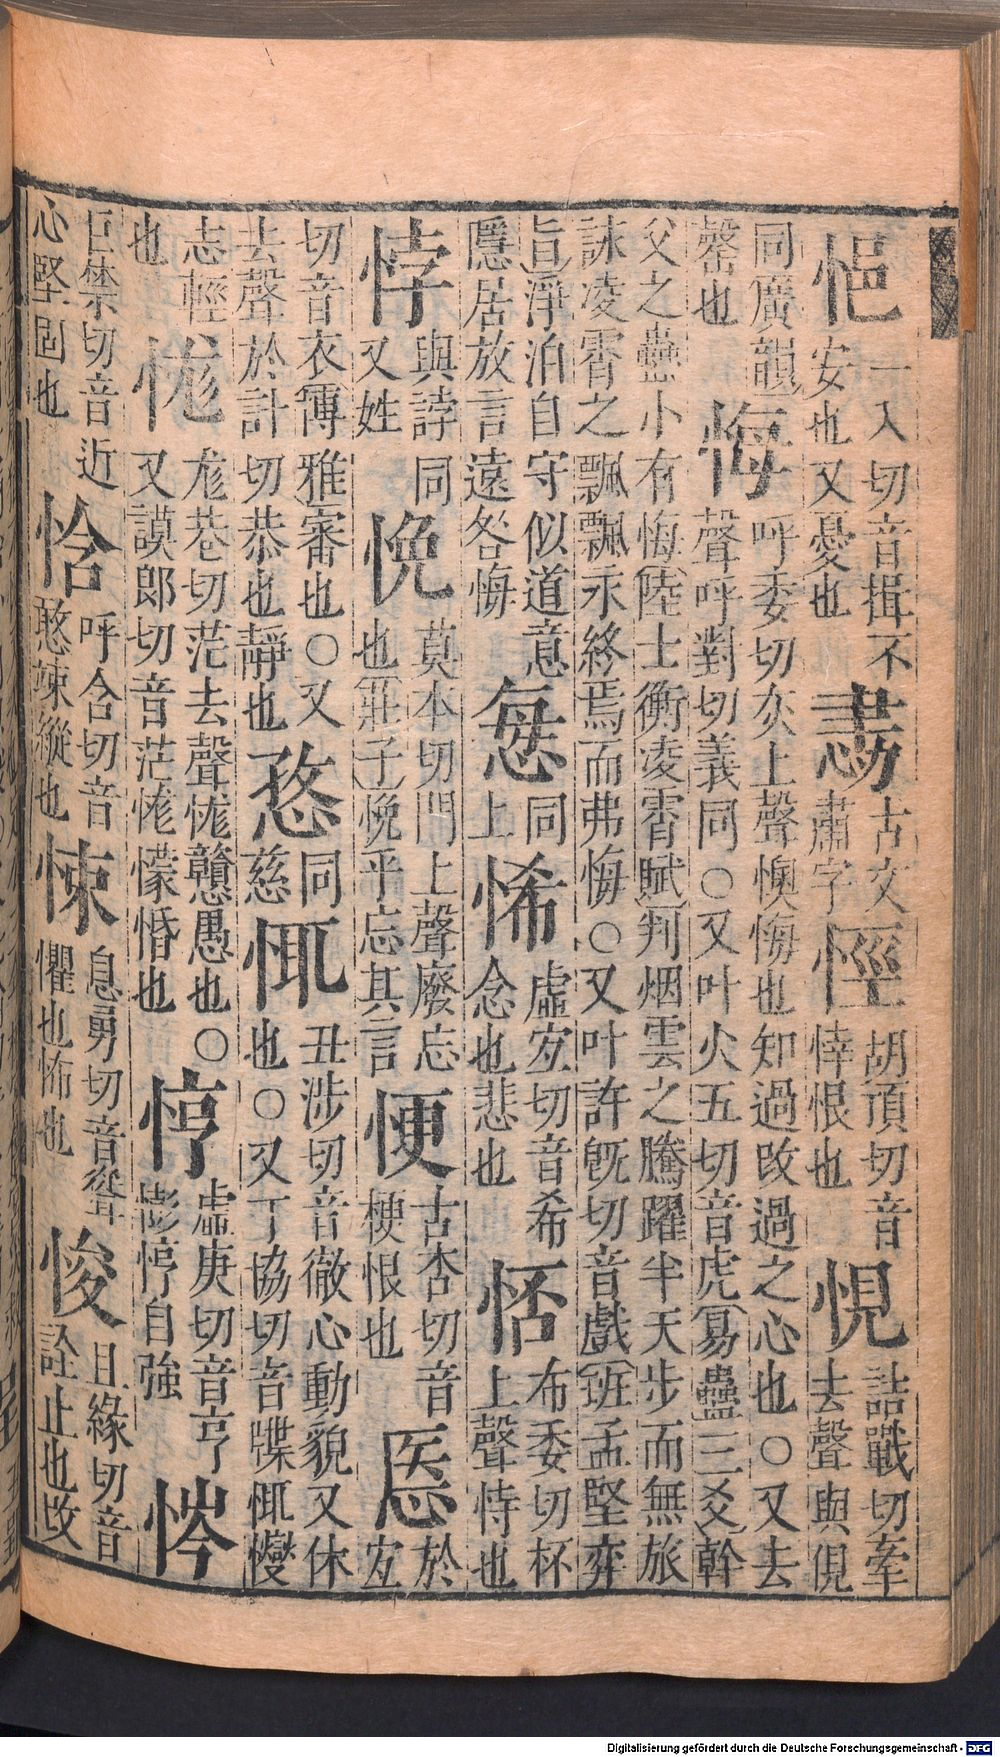 悒一入切音揖不安也又憂也古文肅字𢙼胡頂切音悻恨也悓詰戰切牽去聲與俔
同廣韻罄也悔呼委切灰上聲懊悔也知過改過之心也○又去聲呼對切義同○又叶火五切音虎易蠱三爻幹
父之蠱小有悔陸士衡凌霄賦判烟雲之騰躍半天步而無旅詠凌霄之飄飄永終焉而弗悔○又叶許旣切音戲班孟堅弈
旨淨泊自守似道意隱居放言遠咎悔𢙓同上悕虛宜切音希念也悲也布委切杯上聲恃也
悖與誖同又姓悗莫本切門上聲廢忘也莊子悗乎忘其言㥌古杏切音梗恨也悘於宜
切音衣博雅審也○又去聲於計切恭也靜也同慈㤴丑涉切音徹心動貌又休也○又丁協切音牒㤴㦪
志輕也㤶厖巷切茫去聲㤶戇愚也○又謨郎切音茫㤶懞惽也悙虛庚切音亨憉悙自強
巨禁切音近心堅固也㤷呼含切音憨㤷縱也悚息勇切音聳懼也怖也悛且緣切音詮止也改